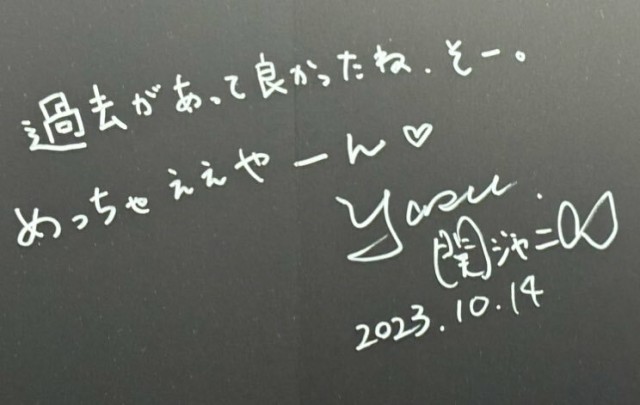 過去があって良かったね、そー。
めっちゃええやーん♡
yasu.
関ジャニ∞
2023.10.14